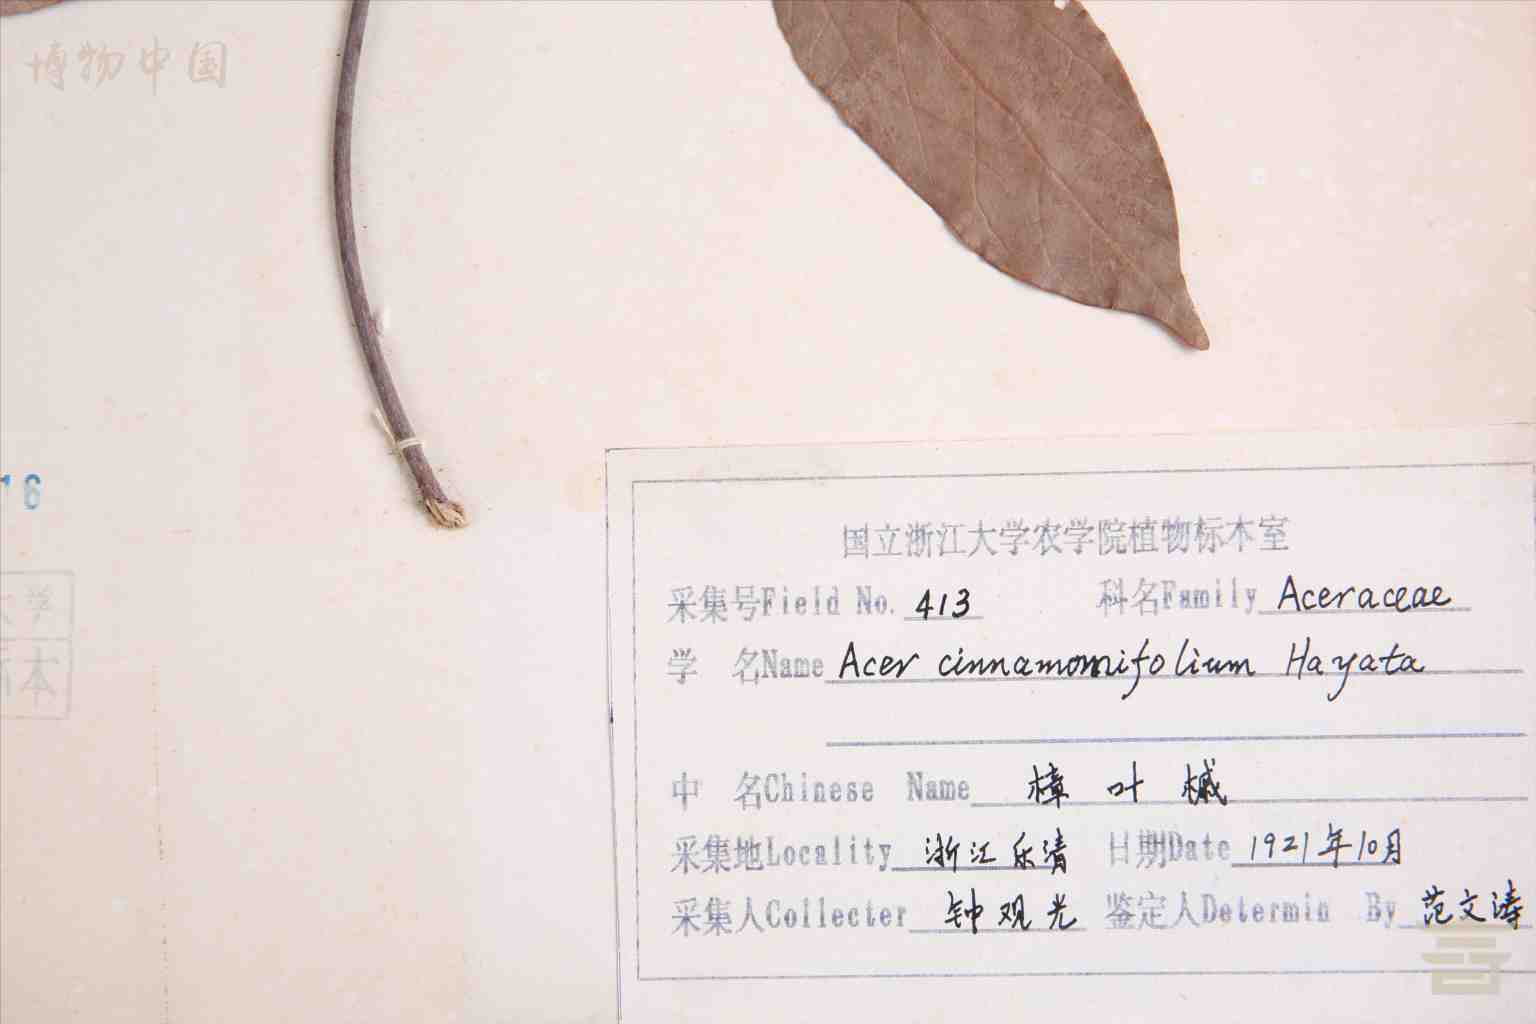 博物中国
16
国立浙江大学农学院植物标本室
采集号Field No. 413 科名Family Aceraceae
学 名Name Acer cinnamomifolium Hayata
中 名Chinese Name 樟叶槭
采集地Locality 浙江乐清 日期Date 1921年10月
采集人Collecter 钟观光 鉴定人Determin By 范文涛
大学
标本